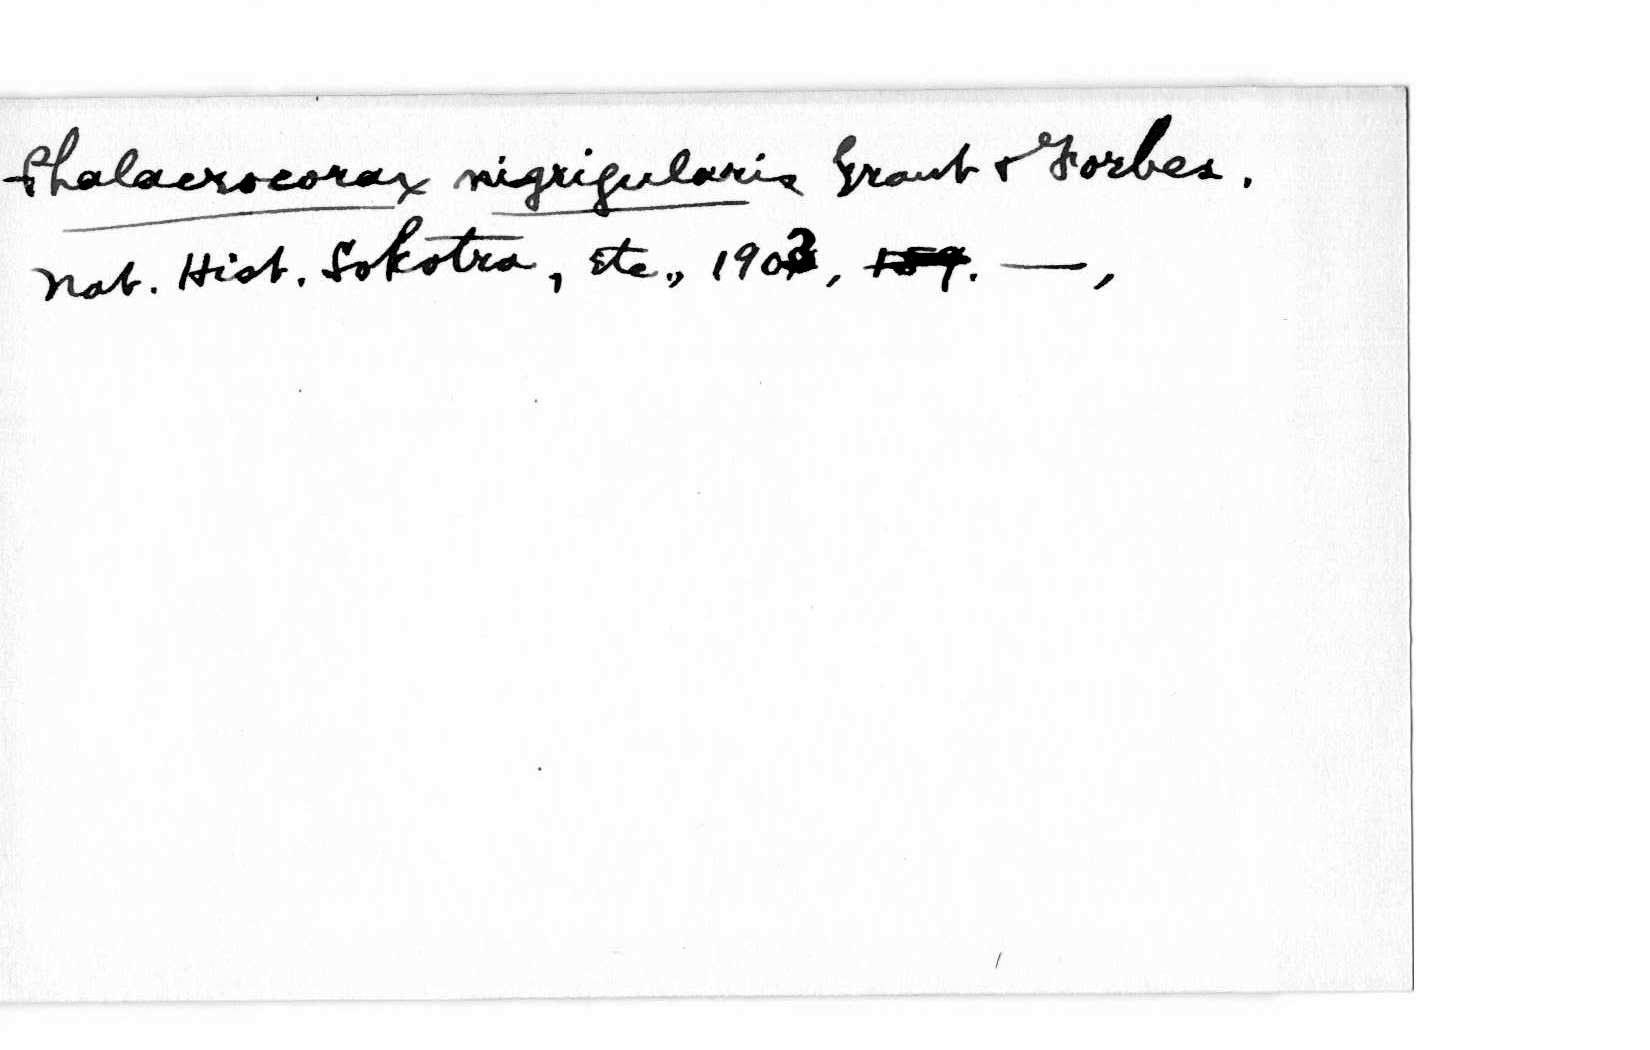 Phalacrocorax nigrigularis Grant & Forbes.
Nat. Hist. Sokotra, etc., 1903, 159. —,